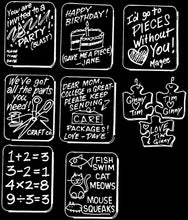 You are
invited to a
PARTY!
(BLAST)
HAPPY
BIRTHDAY!
(SAVE ME A PIECE)
JANE
I'd go to
PIECES
Without
You!
Mages
We've got
all the parts
you
need!
CRAFT CO.
DEAR MOM,
COLLEGE IS GREAT-
PLEASE KEEP
SENDING
CARE
PACKAGES!
LOVE - DAVE
Ginny
Tim
Ginny
LOVE
TIM &
GINNY
1+2=3
3-2=1
4×2=8
9÷3=3
FISH
SWIM
CAT
MEOWS
MOUSE
SQUEAKS